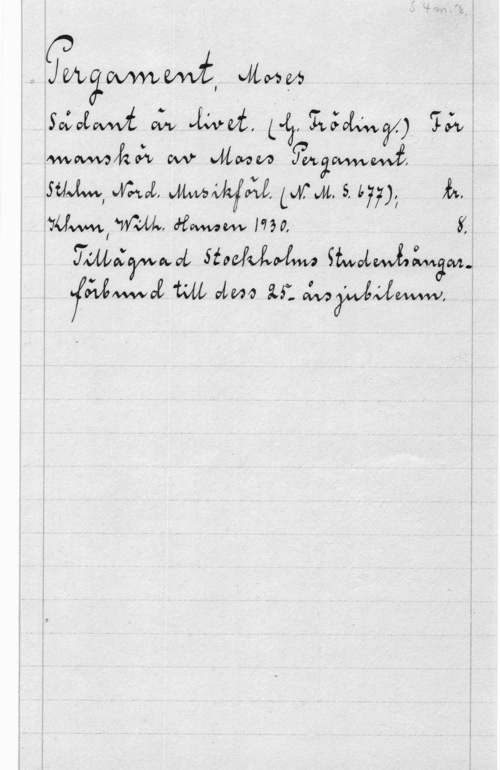 S 4 m. k.
Pergament, Moses
Sådant är livet. (G. Fröding.) För
manskör av Moses Pergament.
Sthlm, Nord. Musikförl. (N. M. S. 677); tr.
Khvn, Wilh. Hansen 1930. 8.
Tillägnad Stockholms Studentsångar-
förbund till dess 25-årsjubileum.